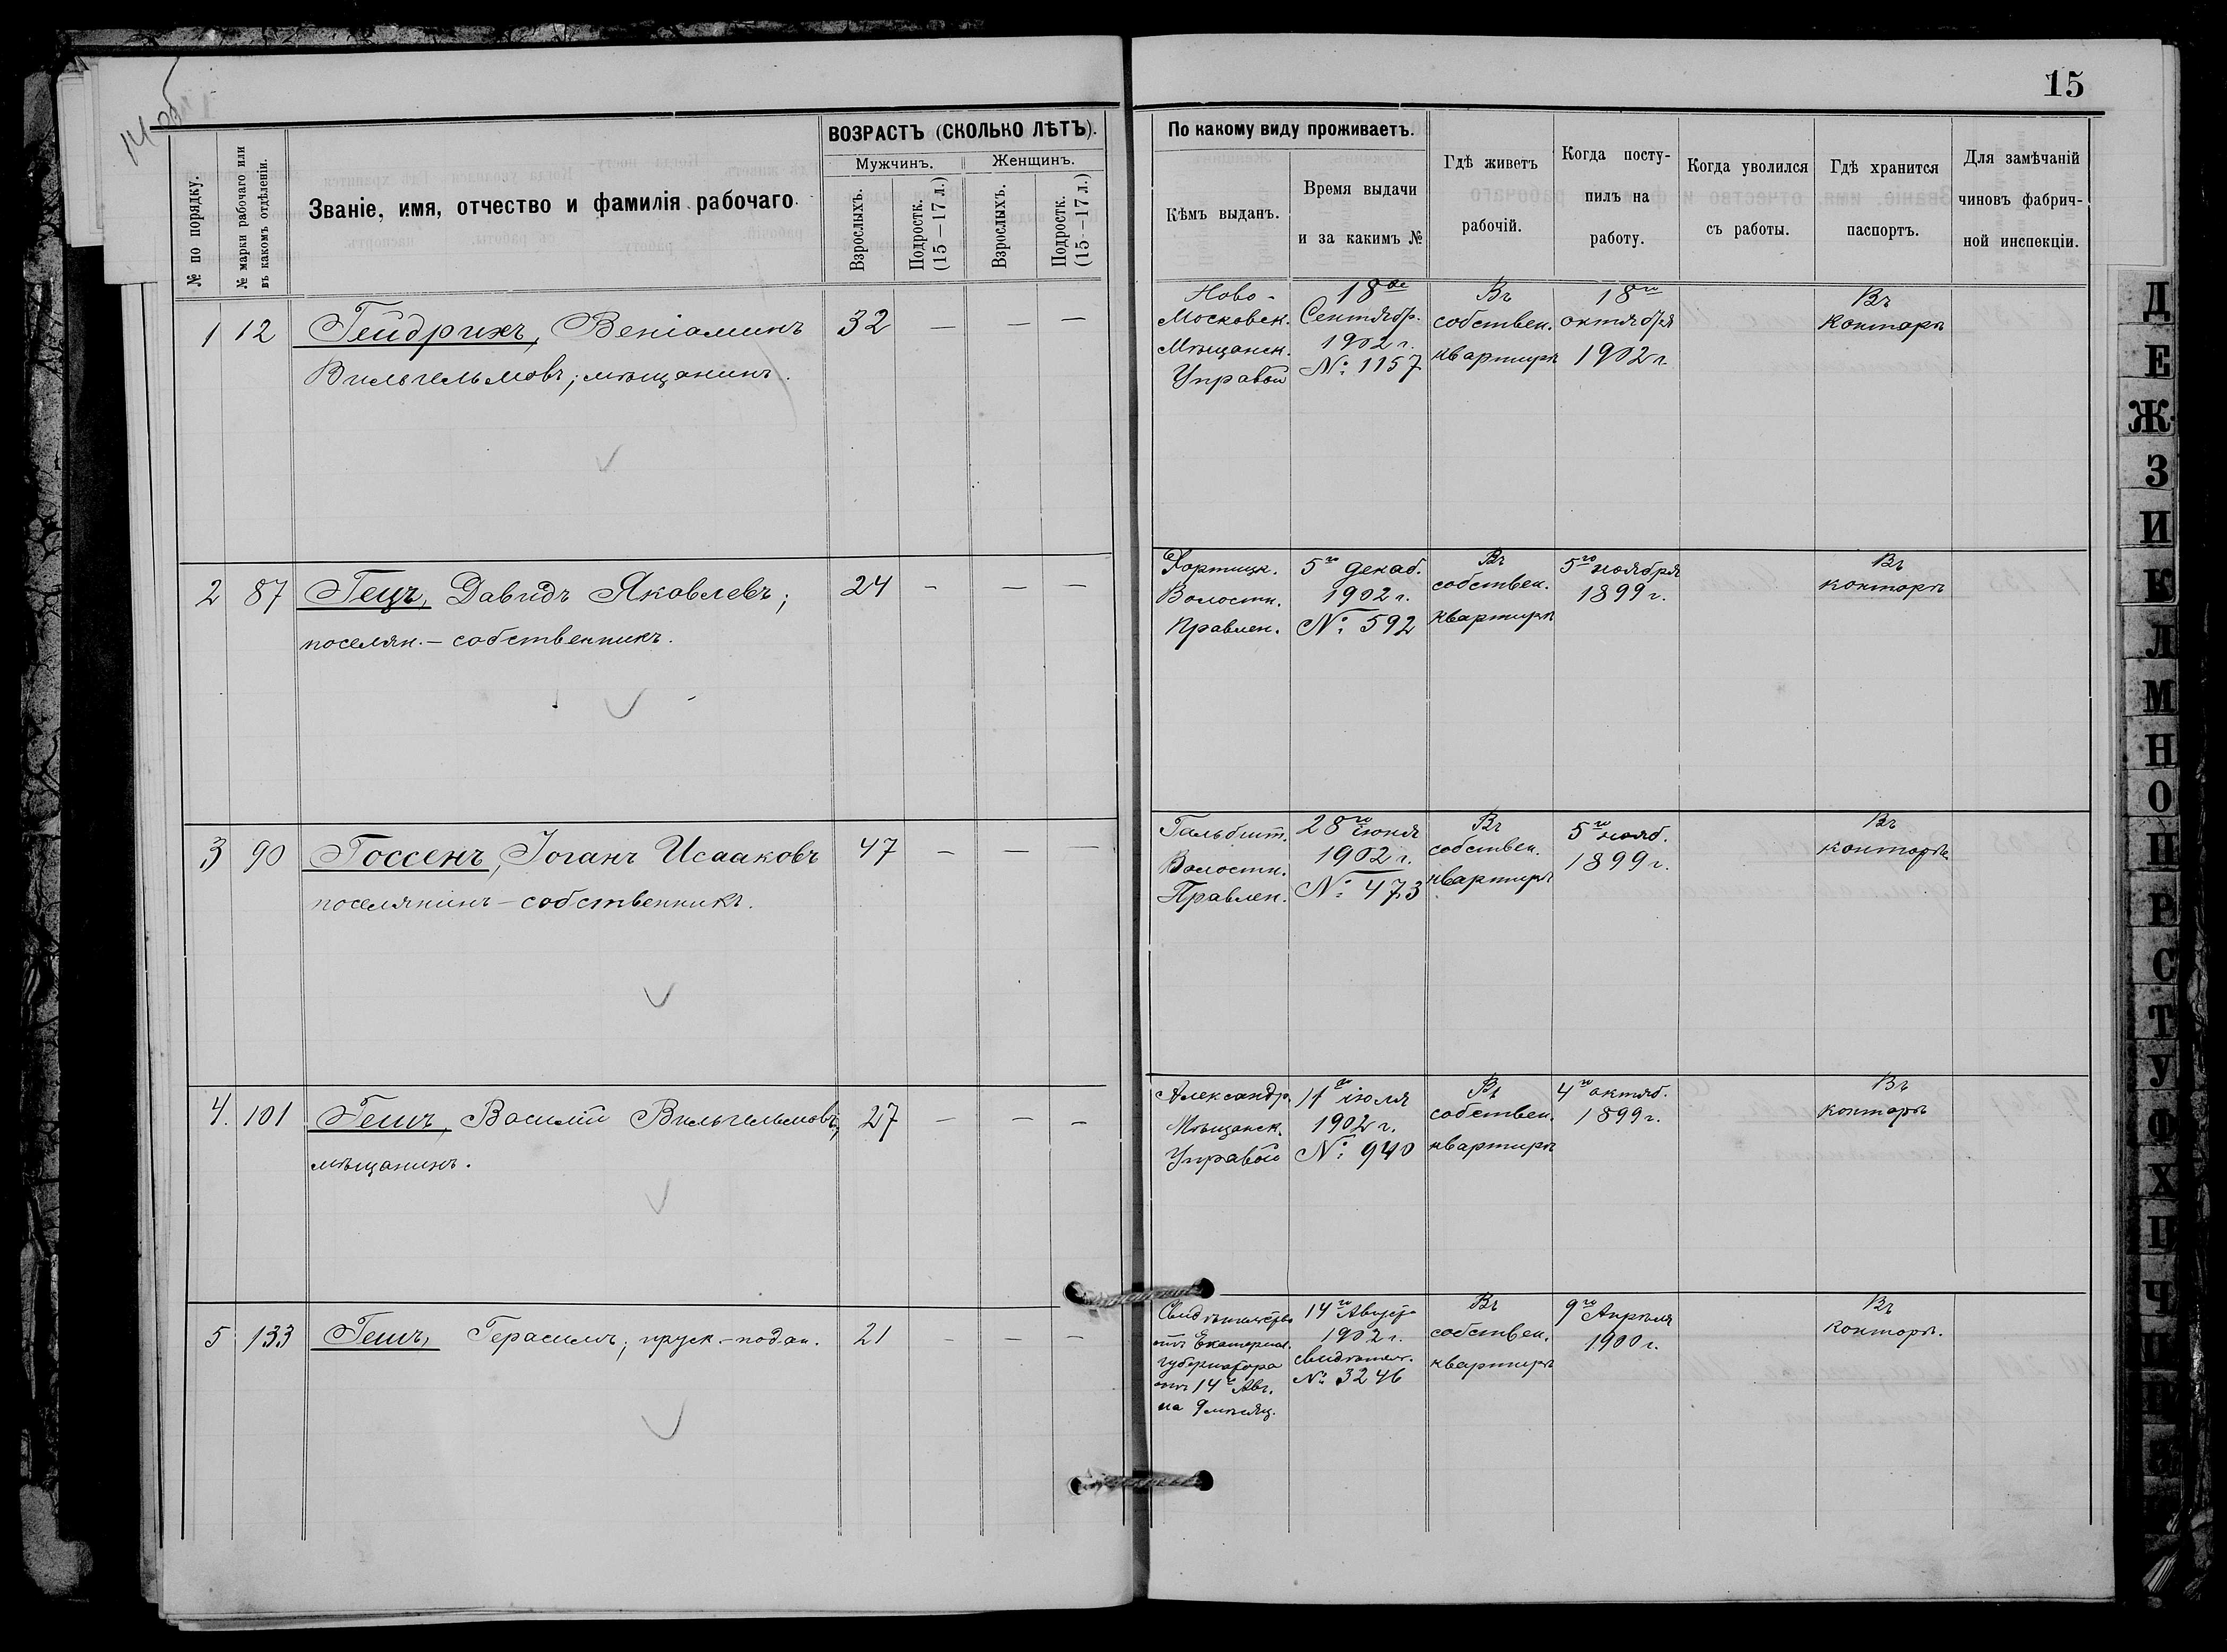 14 об
15
ВОЗРАСТЪ (СКОЛЬКО ЛѢТЪ).
Мужчинъ.
Женщинъ.
№ по порядку.
№ марки рабочаго или
въ какомъ отдѣленіи.
Званіе, имя, отчество и фамилія рабочаго.
Взрослыхъ.
Подростк.
(15—17 л.)
Взрослыхъ.
Подростк.
(15—17 л.)
По какому виду проживаетъ.
Кѣмъ выданъ.
Время выдачи
и за какимъ №
Гдѣ живетъ
рабочій.
Когда посту-
пилъ на
работу.
Когда уволился
съ работы.
Гдѣ хранится
паспортъ.
Для замѣчаній
чиновъ фабрич-
ной инспекціи.
1 12 Гейдрихъ, Веніаминъ
Вильгельмовъ; мѣщанинъ.
32 — — —
Ново-
Московск.
Мѣщанск.
Управой
18го
Сентябр.
1902 г.
№ 1157
Въ
собствен.
квартирѣ
18го
октября
1902 г.
Въ
Конторѣ
2 87 Гецъ, Давидъ Яковлевъ;
поселян.— собственникъ.
24 — — —
Хортицк.
Волостн.
Правлен.
5го Декаб.
1902 г.
№ 592
Въ
собствен.
квартирѣ
5го ноября
1899 г.
Въ
конторѣ
3 90 Госсенъ, Іоганъ Исааковъ
поселянинъ—собственникъ.
47 — — —
Гальбшт.
Волостн.
Правлен.
28го іюня
1902 г.
№ 473
Въ
собствен.
квартирѣ
5го нояб.
1899 г.
Въ
конторѣ
4. 101 Гешъ, Василій Вильгельмовъ;
мѣщанинъ.
27 — — —
Александр.
Мѣщанск.
Управой
11го іюля
1902 г.
№ 940
Въ
собствен.
квартирѣ
4го октяб.
1899 г.
Въ
конторѣ
5 133 Гешъ, Герасимъ; прусск.-подан.
21 — — —
Свидѣтельство
отъ Екатеринос.
Губернатора
отъ 14го Авг.
на 9 мѣсяц.
14го Августа
1902 г.
свидѣтел.
№ 3246
Въ
собствен.
квартирѣ
9го Апрѣля
1900 г.
Въ
конторѣ.
Д
Е
Ж
З
И
К
Л
М
Н
О
П
Р
С
Т
У
Ф
Х
Ц
Ч